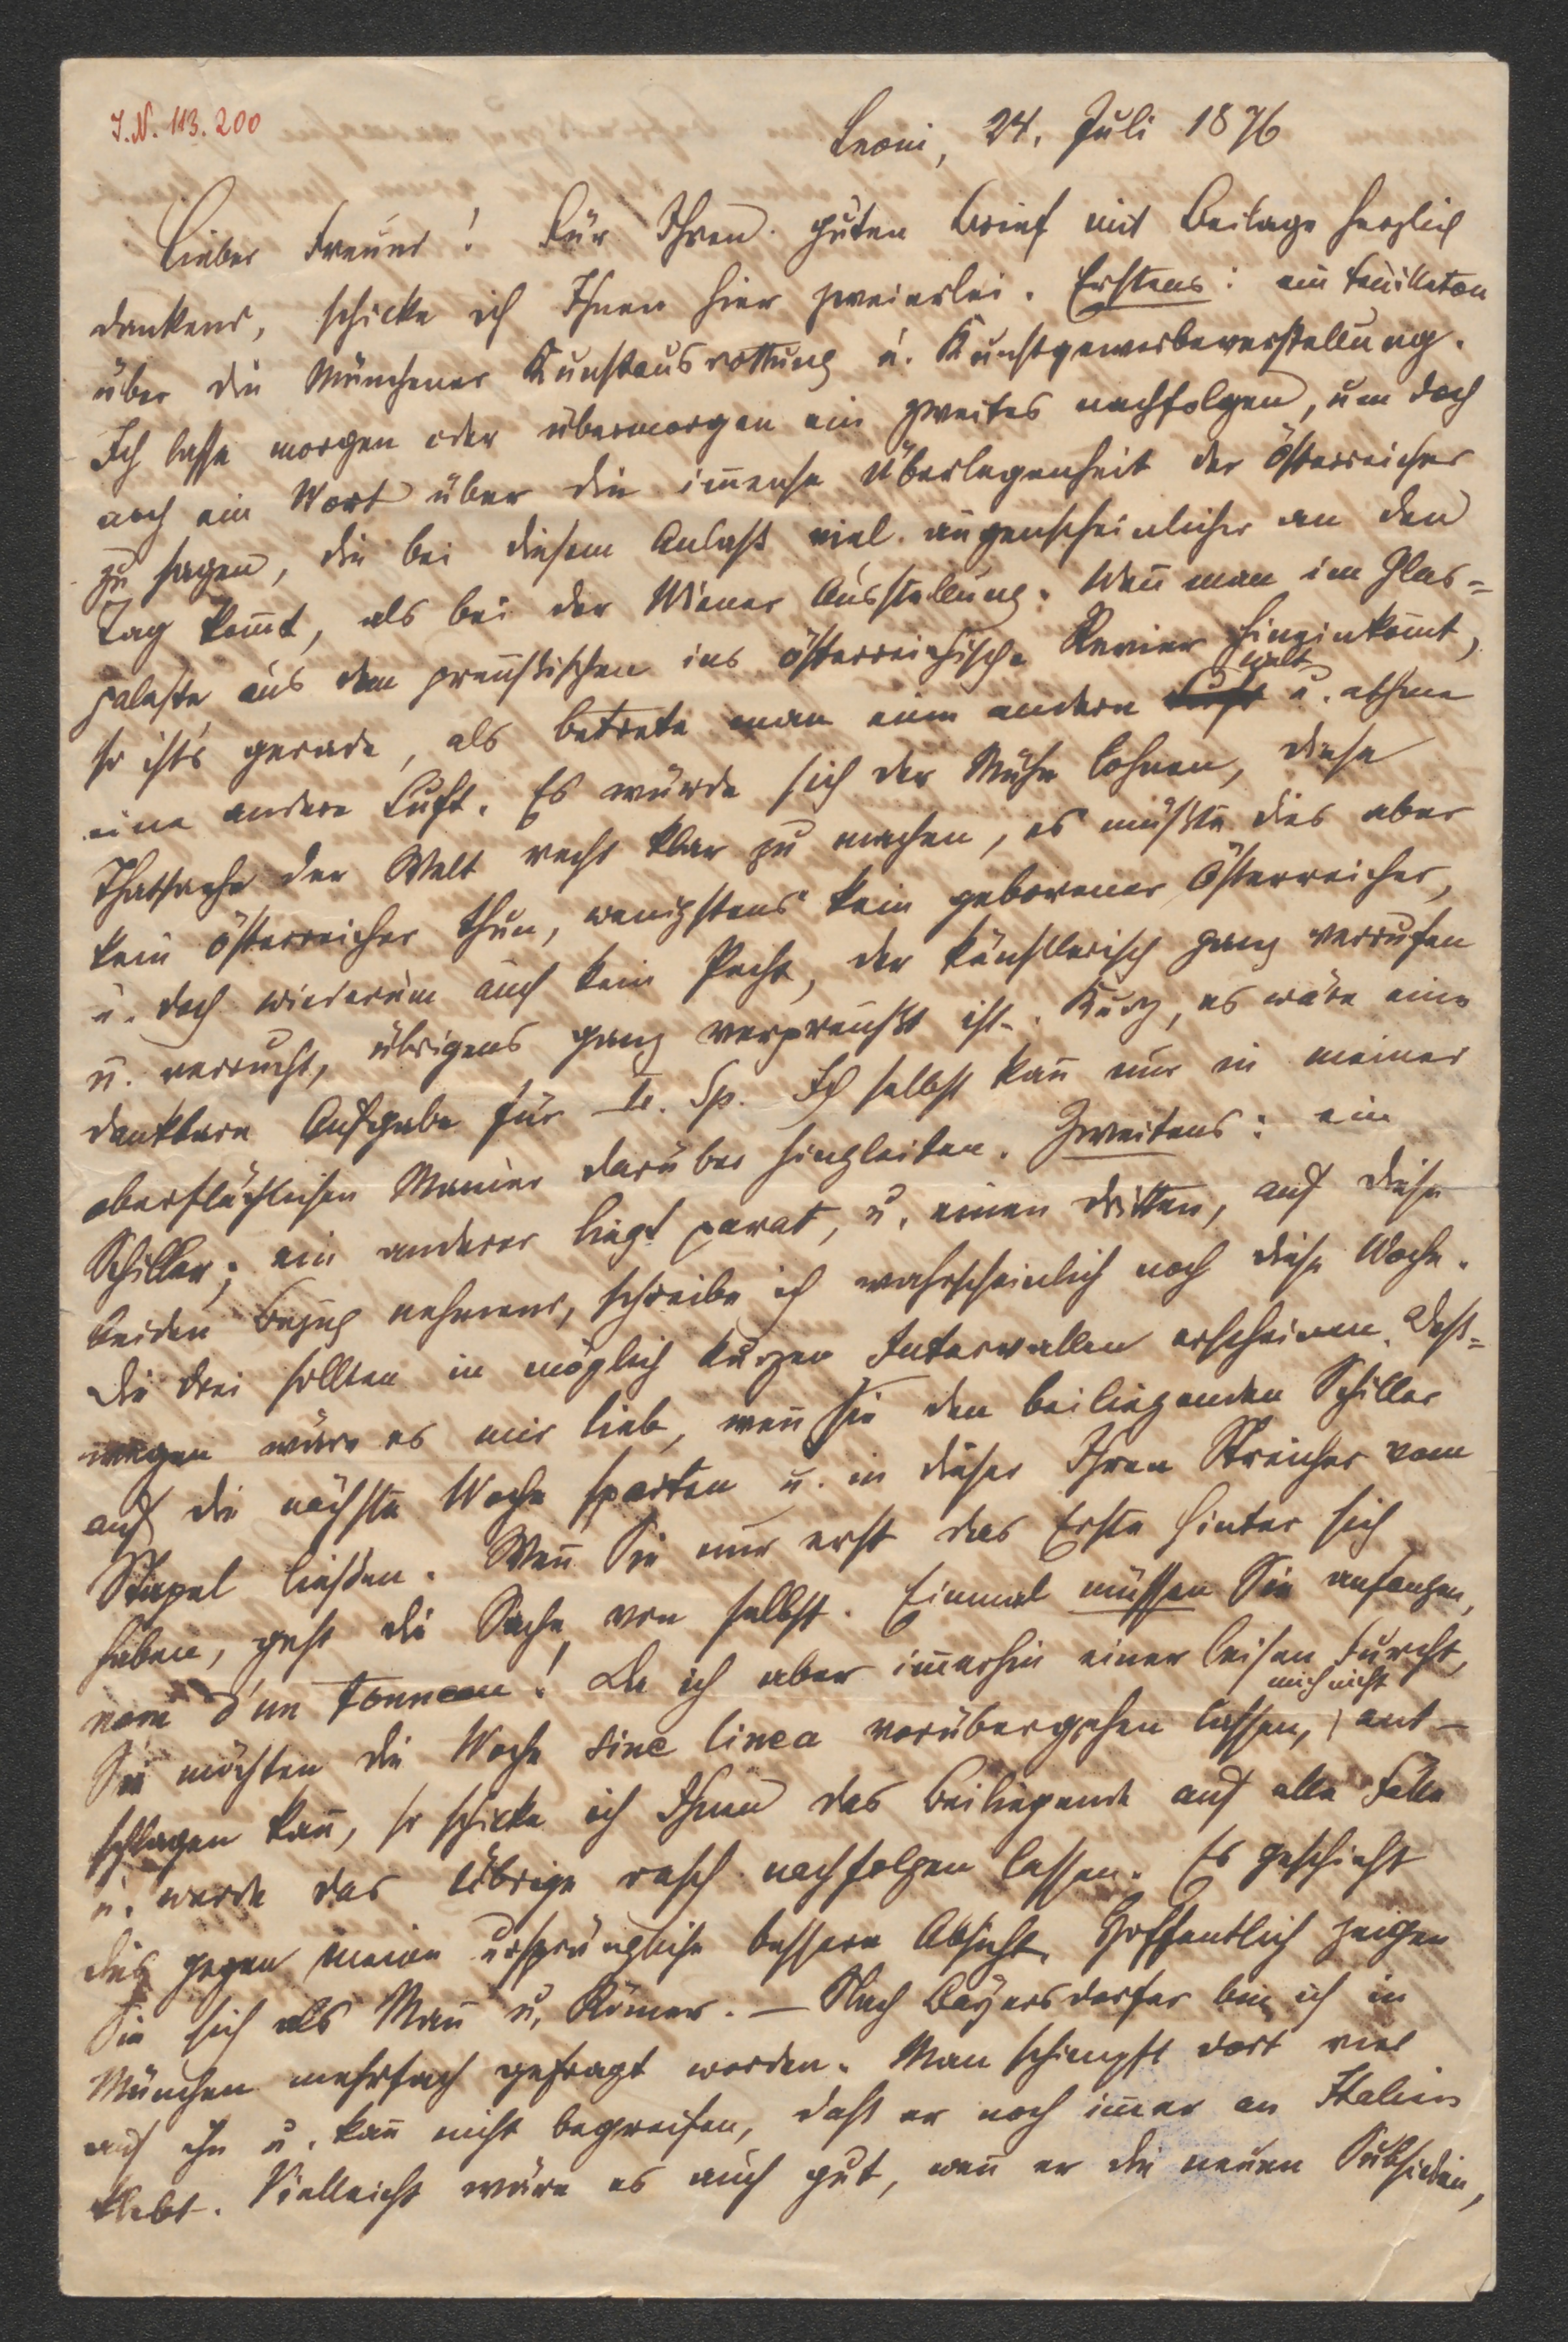 J.N. 113.200
Leoni, 24. Juli 1876
Lieber Freund! Für Ihren guten Brief mit Beilage herzlich
dankend, schicke ich Ihnen hier zweierlei. Erstens: ein Feuilleton
über die Münchener Kunstausrottung u. Kunstgewerbeverstellung.
Ich lasse morgen oder übermorgen ein zweites nachfolgen, um doch
auch ein Wort über die im̅ense Überlegenheit der Österreicher
zu sagen, die bei diesem Anlaß viel augenscheinlicher an den
Tag kom̅t, als bei der Wiener Ausstellung. Wen̅ man im Glas=
palaste aus dem preußischen ins österreichische Revier hineinkom̅t,
so ist's gerade, als betrete man eine andere Welt u. athme
eine andere Luft. Es würde sich der Mühe lohnen, diese
Thatsache der Welt recht klar zu machen, es müßte dies aber
kein Österreicher thun, wenigstens kein geborener Österreicher,
u. doch wiederum auch kein Pecht, der künstlerisch ganz verrufen
u. verrucht, übrigens ganz verpreußt ist. Kurz, es wäre eine
dankbare Aufgabe für L. Sp. Ich selbst kan̅ nur in meiner
oberflächlichen Manier darüber hingleiten. Zweitens: ein
Schiller; ein anderer liegt parat, u. einen dritten, auf diese
beiden Bezug nehmend, schreibe ich wahrscheinlich noch diese Woche.
Die drei sollten in möglich kurzen Intervallen erscheinen. Deß=
wegen wäre es mir lieb, wen̅ Sie den beiliegenden Schiller
auf die nächste Woche sparten u. in dieser Ihren Streicher vom
Stapel ließen. Wen̅ Sie nur erst das Erste hinter sich
haben, geht die Sache von selbst. Einmal müssen Sie anfangen,
nom d'un tonneau! Da ich aber im̅erhin einer leisen Furcht,
Sie möchten die Woche sine linea vorübergehen lassen, mich nicht ent-
schlagen kan̅, so schicke ich Ihnen das Beiliegende auf alle Fälle
u. werde das Übrige rasch nachfolgen lassen. Es geschieht
dies gegen meine ursprüngliche bessere Absicht. Hoffentlich zeigen
Sie sich als Man̅ u. Römer. — Nach Bayersdorfer bin ich in
München mehrfach gefragt worden. Man schimpft dort viel
auf ihn u. kan̅ nicht begreifen, daß er noch im̅er an Italien
klebt. Vielleicht wäre es auch gut, wen̅ er die neuen Subsidien,